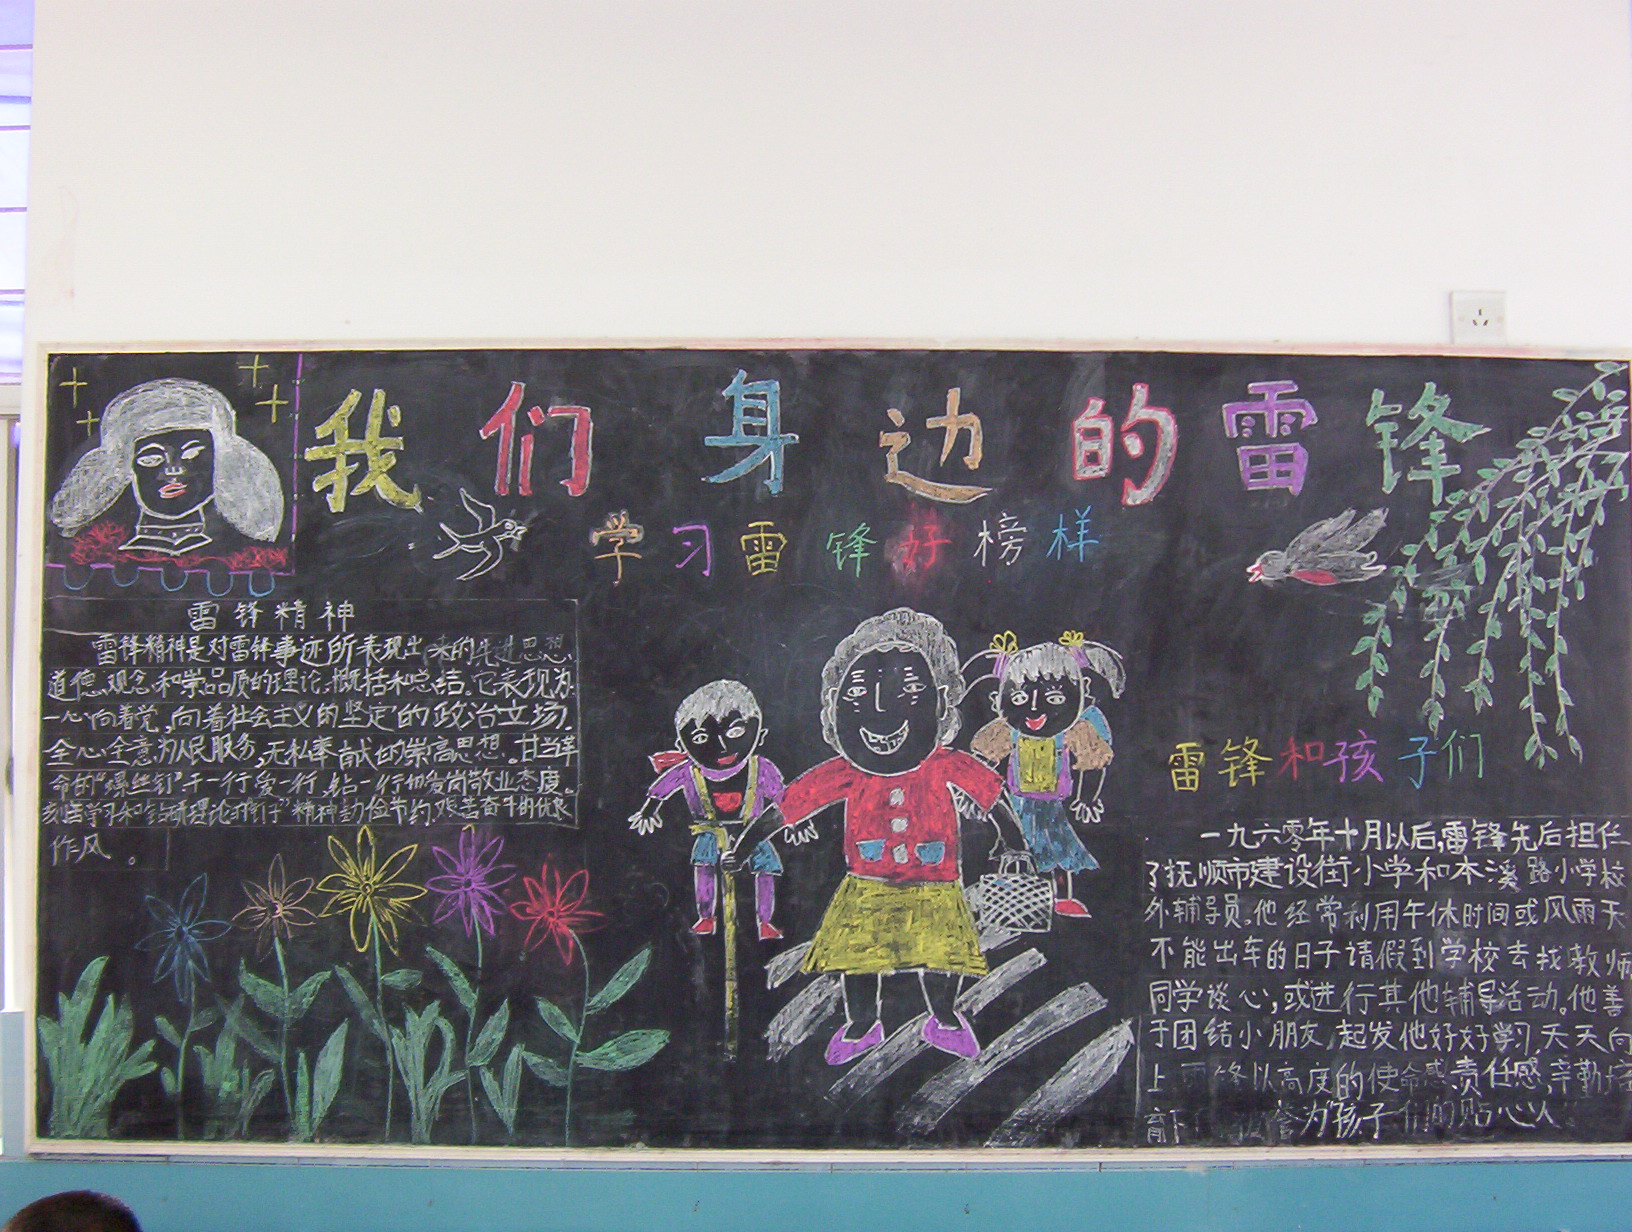 我们身边的雷锋
学习雷锋好榜样
雷锋精神
雷锋精神是对雷锋事迹所表现出来的先进思想
道德观念和崇品质的理论概括和总结。它表现为
一心向着党,向着社会主义的坚定的政治立场.
全心全意为人民服务,无私奉献的崇高思想。甘当革
命的“螺丝钉”干一行爱一行,钻一行的爱岗敬业态度。
刻苦学习和钻研理论的“钉子”精神勤俭节约.艰苦奋斗的优良
作风。
雷锋和孩子们
一九六零年十月以后,雷锋先后担任
了抚顺市建设街小学和本溪路小学校
外辅导员。他经常利用午休时间或风雨天
不能出车的日子请假到学校去找教师
同学谈心,或进行其他辅导活动。他善
于团结小朋友,起发他好好学习,天天向
上 雷锋以高度的使命感责任感,辛勤培
育下 被誉为“孩子们的贴心人